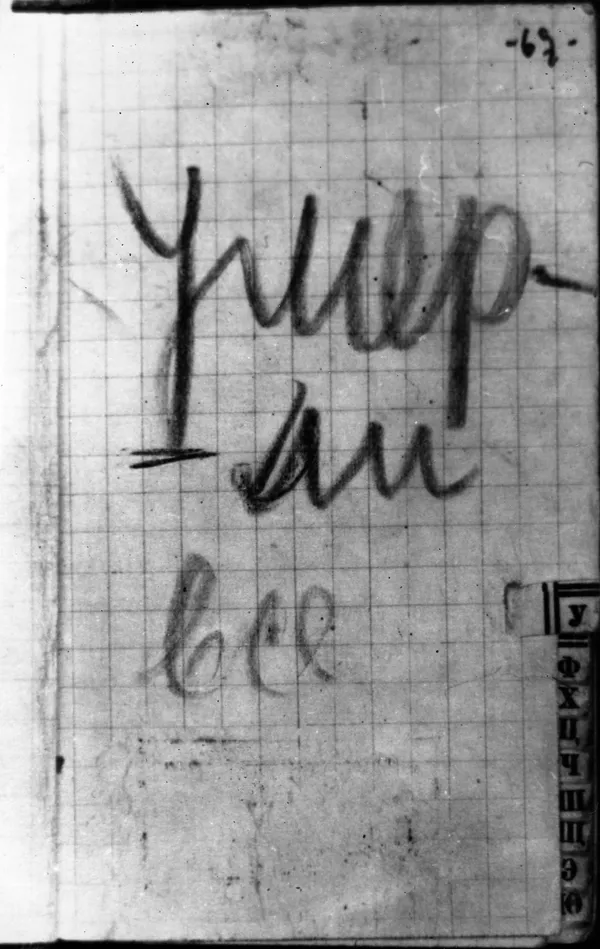 -69-
Умер-
ли
все
У
Ф
Х
Ц
Ч
Ш
Щ
Э
Ю